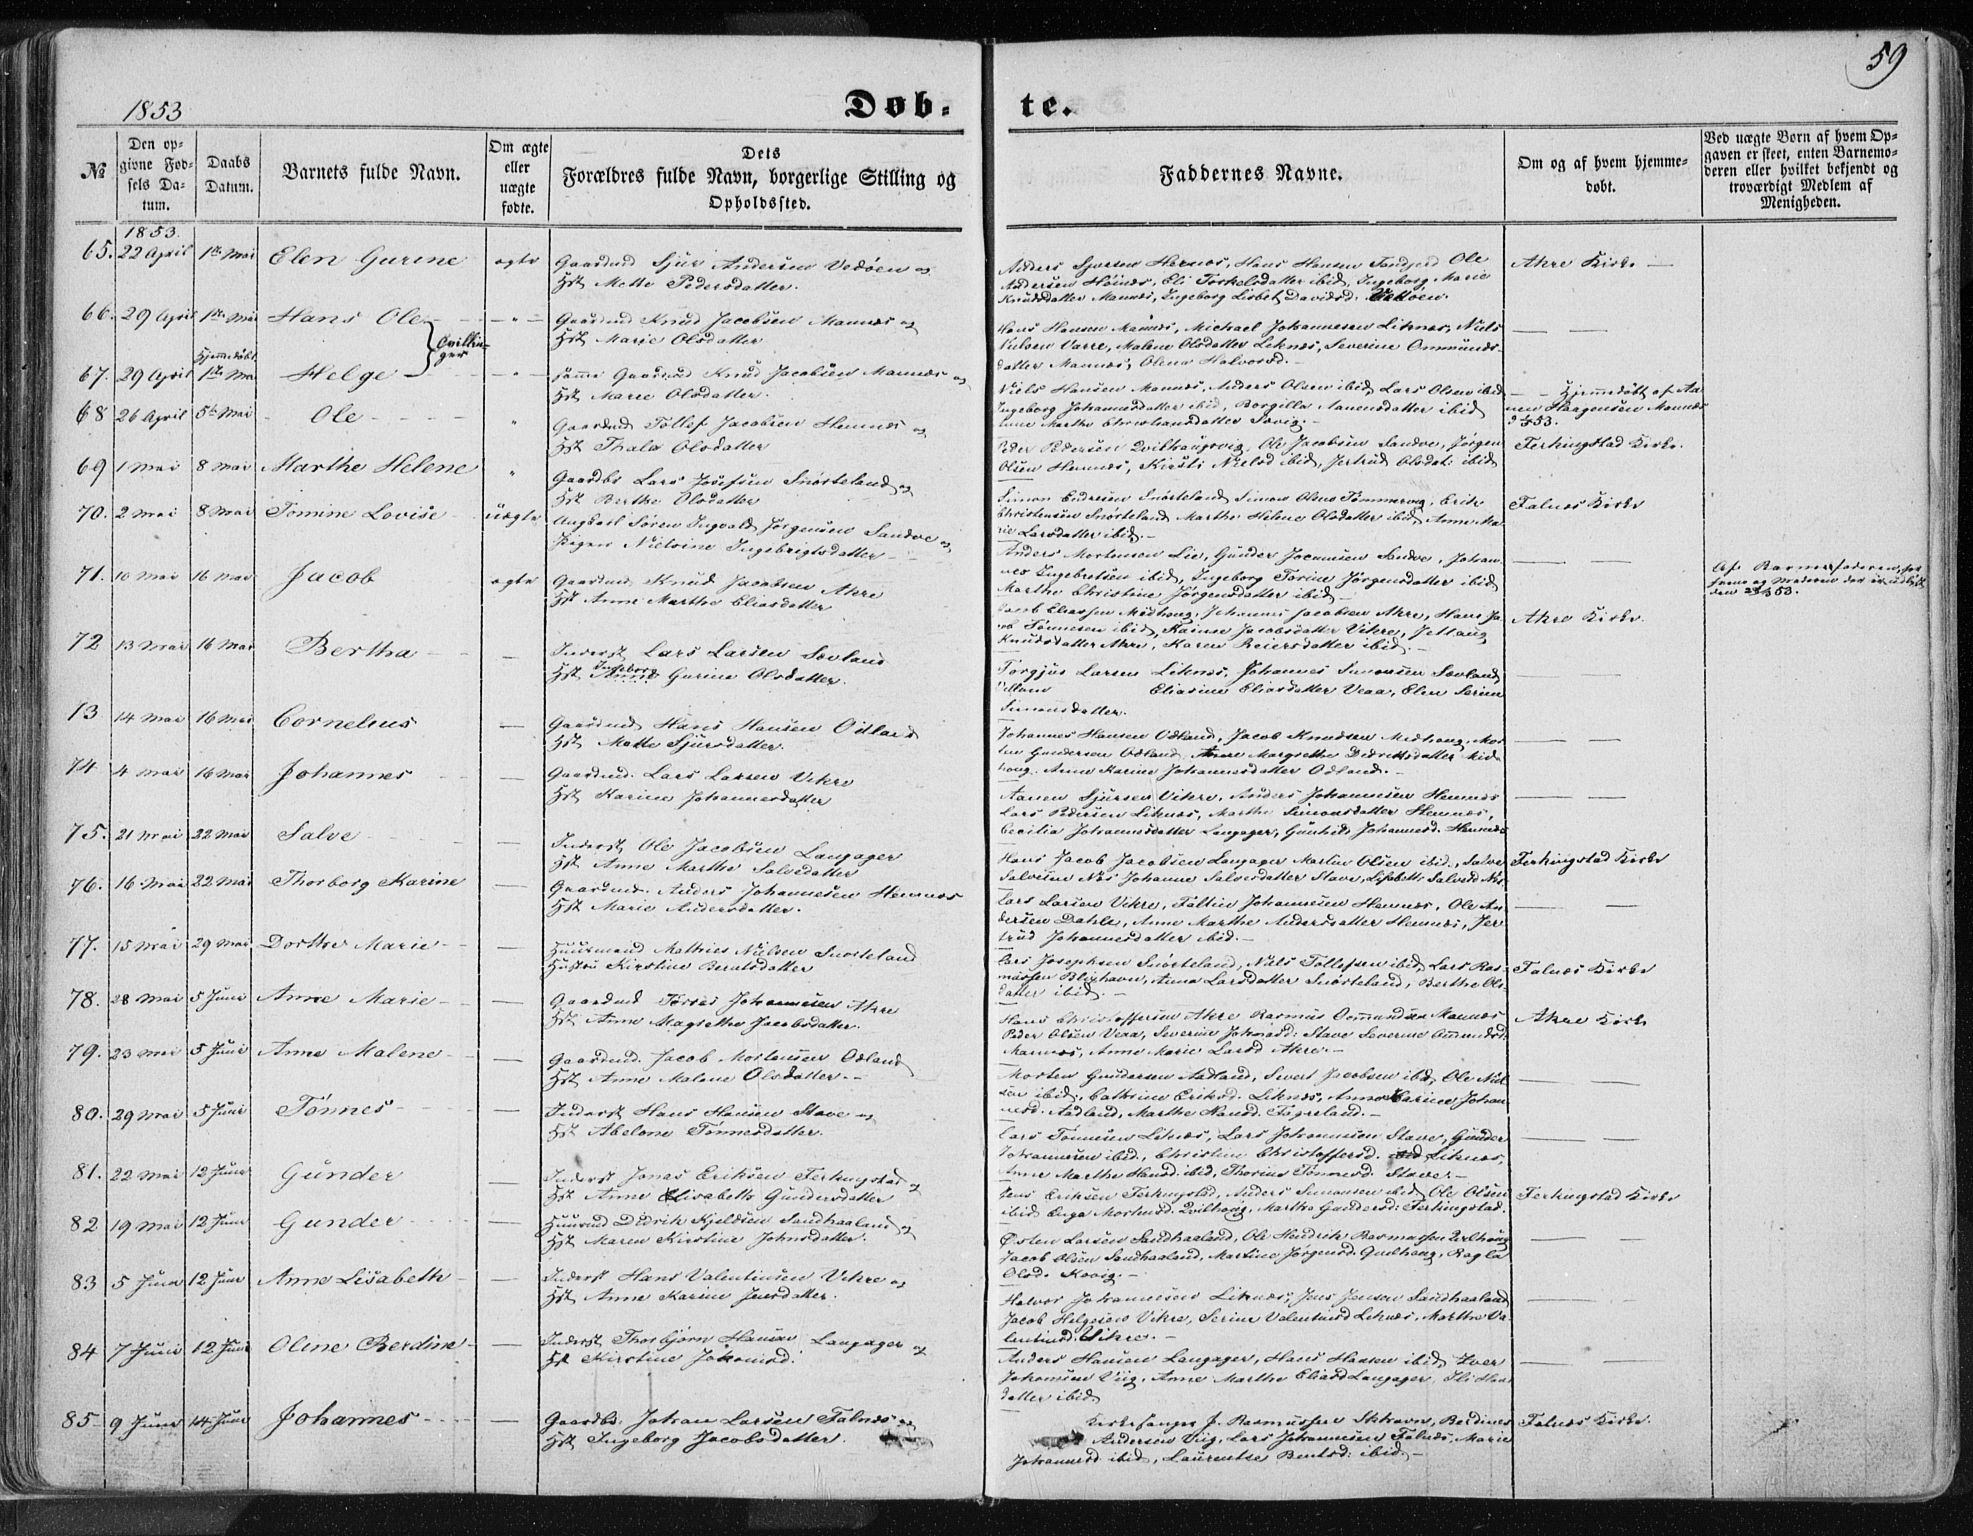 59
1853
Døb-
te.
№
Den op-
givne Fød-
sels Da-
tum.
Daabs
Datum.
Barnets fulde Navn.
Om ægte
eller
uægte
fødte.
Dets
Forældres fulde Navn, borgerlige Stilling og
Opholdssted.
Faddernes Navne.
Om og af hvem hjemme-
døbt.
Ved uægte Børn af hvem Op-
gaven er skeet, enten Barnemo-
deren eller hvilket bekjendt og
troværdigt Medlem af
Menigheden.
1853.
65. 22 April 1ste Mai Elen Gurine ægte Gaardmd Sjur Andersen Vedøen og
Hst Mette Pedersdatter.
Anders Sjursen Hemnes, Hans Hansen Ole
Andersen Høines, Eli Torkelsdatter ibid, Ingeborg Marie
Knudsdatter Mannes, Ingeborg Lisbet Davidsd.
Akre Kirke —
66. 29 April 1ste Mai Hans Ole — " — Gaardmd Knud Jacobsen Mannes og
Hst Marie Olsdatter
Tvillin-
ger
Hans Hansen Mannes, Michael Johannesen Liknes, Niels
Nielsen Varre, Malene Olsdatter Liknes, Severine Ommunds-
datter Mannes, Olena Halvorsd. —
Hjemmedøbt
67. 29 April 1ste Mai Helge — " samme Gaardmd Knud Jacobsen Mannes og
Hst Marie Olsdatter.
Niels Hansen Mannes, Anders Olsen ibid, Lars Olsen ibid
Ingeborg Johannesdatter ibid, Borgilla Aanensdatter ibid
Anne Marthe Christiansdatter
— Hjemmedøbt af Aa-
nen Haagensen Mannes
68 26 April 5te Mai Ole " Gaardmd Tollef Jacobsen Hemnes og
Hst Thala Olsdatter
Peder Pedersen Ole Jacobsen Sandve, Jørgen
Olsen Hemnes, Kirsti Nielsd ibid, Jertrud Olsdat: ibid
Ferkingstad Kirke.
69 1 Mai 8 Mai Marthe Helene " Gaardbr Lars Josefsen Snørteland og
Hst Berthe Olsdatter
Simon Endresen Snørteland Simon Olsen Tømmervig, Erik
Christensen Snørteland Marthe Helene Olsdatter ibid Anne Ma-
rie Larsdatter ibid. —
Falnes Kirke
70. 2 Mai 8 Mai Tomine Lovise uægte Ungkarl Søren Ingvald Jørgensen Sandve og
Pigen Nielsine Ingebrigtsdatter —
Anders Mortensen Lie, Gunder Jocumsen Sandve, Johan-
nes Ingebretsen ibid, Ingeborg Torine Jørgensdatter ibid
Marthe Christine Jørgensdatter ibid —
Af Barnefaderen
71. 10 Mai 16 Mai Jacob ægte Gaardmd Knud Jacobsen Akre
Hst Anne Marthe Eliasdatter
Jacob Eliassen Medhaug, Johannes Jacobsen Akre, Hans Ja-
cob Tønnesen ibid, Karine Jacobsdatter Vikre,
Knudsdatter Akre, Karen Reiersdatter ibid. —
Akre Kirke.
72 13 Mai 16 Mai Bertha — Inderst Lars Larsen Sevland
Ingeborg
Hst Gurine Olsdatter.
Torgjus Larsen Liknes, Johannes Simonsen Sevland
Eliasine Eliasdatter Veaa, Elen Serine
Simonsdatter.
— —
73 14 Mai 16 Mai Cornelius — Gaardmd Hans Hansen Odland
Hst Mette Sjursdatter.
Johannes Hansen Odland, Jacob Knudsen Medhaug, Mor-
ten Gundersen Odland, Anne Margrethe Didriksdatter Med-
haug, Anne Karine Johannesdatter Odland. —
— —
74 4 Mai 16 Mai Johannes — Gaardmd. Lars Larsen Vikre
Hst Karine Johannesdatter
Aanen Sjursen Vikre, Anders Johannesen Hemnes
Lars Pedersen Liknes, Marthe Simonsdatter Hemnes,
Cecilia Johannesdatter Langager, Gunhild Johannesd. Hemnes
— —
75. 21 Mai 22 Mai Salve — Inderst Ole Jacobsen Langager
Hst Anne Marthe Salvesdatter
Hans Jacob Jacobsen Langager Martin Olsen ibid, Salve
Salvesen Nes Johanne Salvesdatter Stave, Lisabeth Salvesd Nes
Ferkingstad Kirke
76. 16 Mai 22 Mai Thorborg Karine — Gaardmd. Anders Johannesen Hemnes
Hst Marie Andersdatter.
Lars Larsen Vikre, Johannesen Hemnes, Ole An-
dersen Dahle, Anne Marthe Andersdatter Hemnes, Jer-
trud Johannesdatter ibid. —
— —
77. 15 Mai 29 Mai Dorthe Marie — Huusmand Mathies Nielsen Snørteland
Hustru Kirstine Berntsdatter
Lars Josephsen Snørteland, Niels Tollefsen ibid, Lars Ras-
mussen Bleghavn, Anna Larsdatter Snørteland, Berthe Ols-
datter ibid. —
Falnes Kirke
78. 28 Mai 5 Juni Anne Marie — Gaardmd Torres Johannesen Akre
Hst Anne Magrethe Jacobsdatter.
Hans Christoffersen Akre Rasmus Ommundsen Mannes
Peder Olsen Veaa, Severine Johnsd. Stave Severine Ommundsd.
Mannes, Anne Marie Larsd Akre —
Akre Kirke
79. 23 Mai 5 Juni Anne Malene — Gaardmd. Jacob Mortensen Odland
Hst Anne Malene Olsdatter. —
Morten Gundersen Aadland, Sivert Jacobsen ibid, Ole Niel-
sen ibid, Cathrine Eriksd. Liknes, Anne Karine Johan-
nesd. Aadland, Marthe Hansd. —
— —
80. 29 Mai 5 Juni Tønnes — Inderst Hans Hansen Stave og
Hst Abelone Tønnesdatter.
Lars Tønnesen Liknes, Lars Johannesen Stave, Gunder
Johannesen ibid, Christine Christoffersd. Liknes,
Anne Marthe Hansd. ibid, Thorine Tønnesd. Stave. —
— —
81. 22 Mai 12 Juni Gunder — Inderst Jonas Eriksen Ferkingstad og
Hst Anne Elisabeth Gundersdatter
Jens Eriksen Ferkingstad, Anders Simonsen ibid, Ole Olsen
ibid Inga Mortensd. Qvilhaug, Martha Gundersd: Ferkingstad.
Ferkingstad Kirke
82 19 Mai 12 Juni Gunder — Huusmd Didrik Kjeldsen Sandhaaland og
Hst Maren Kirstine Johnsdatter.
Østen Larsen Sandhaaland, Ole Hendrik Rasmussen Qvilhaug
Jacob Olsen Sandhaaland, Martine Jørgensd. Qvilhaug, Ragla
Olsd. Kovig. —
— —
83 5 Juni 12 Juni Anne Lisabeth — Inderst Hans Valentinsen Vikre og
Hst Anne Karine Jensdatter.
Halvor Johannesen Liknes, Jens Jensen Sandhaaland,
Jacob Helgesen Vikre, Serine Valentinsd Liknes, Marthe Va-
lentinsd. Vikre. —
— —
84 7 Juni 12 Juni Oline Berdine — Inderst Thorbjørn Hansen Langager og
Hst Kirstine Johannesd.
Anders Hansen Langager, Hans Hansen ibid, Iver
Johansen Viig, Anne Marthe Eliasd Langager, Eli Hans-
datter ibid
— —
85 9 Juni 14 Juni Johannes — Gaardbr. Johan Larsen Falnes og
Hst Ingeborg Jacobsdatter.
Kirkesanger J. Rasmussen Skhavn, Berdines
Andersen Viig, Lars Johannesen Falnes, Marie
Johannesd ibid, Laurentse Bentsd: ibid —
Falnes Kirke.